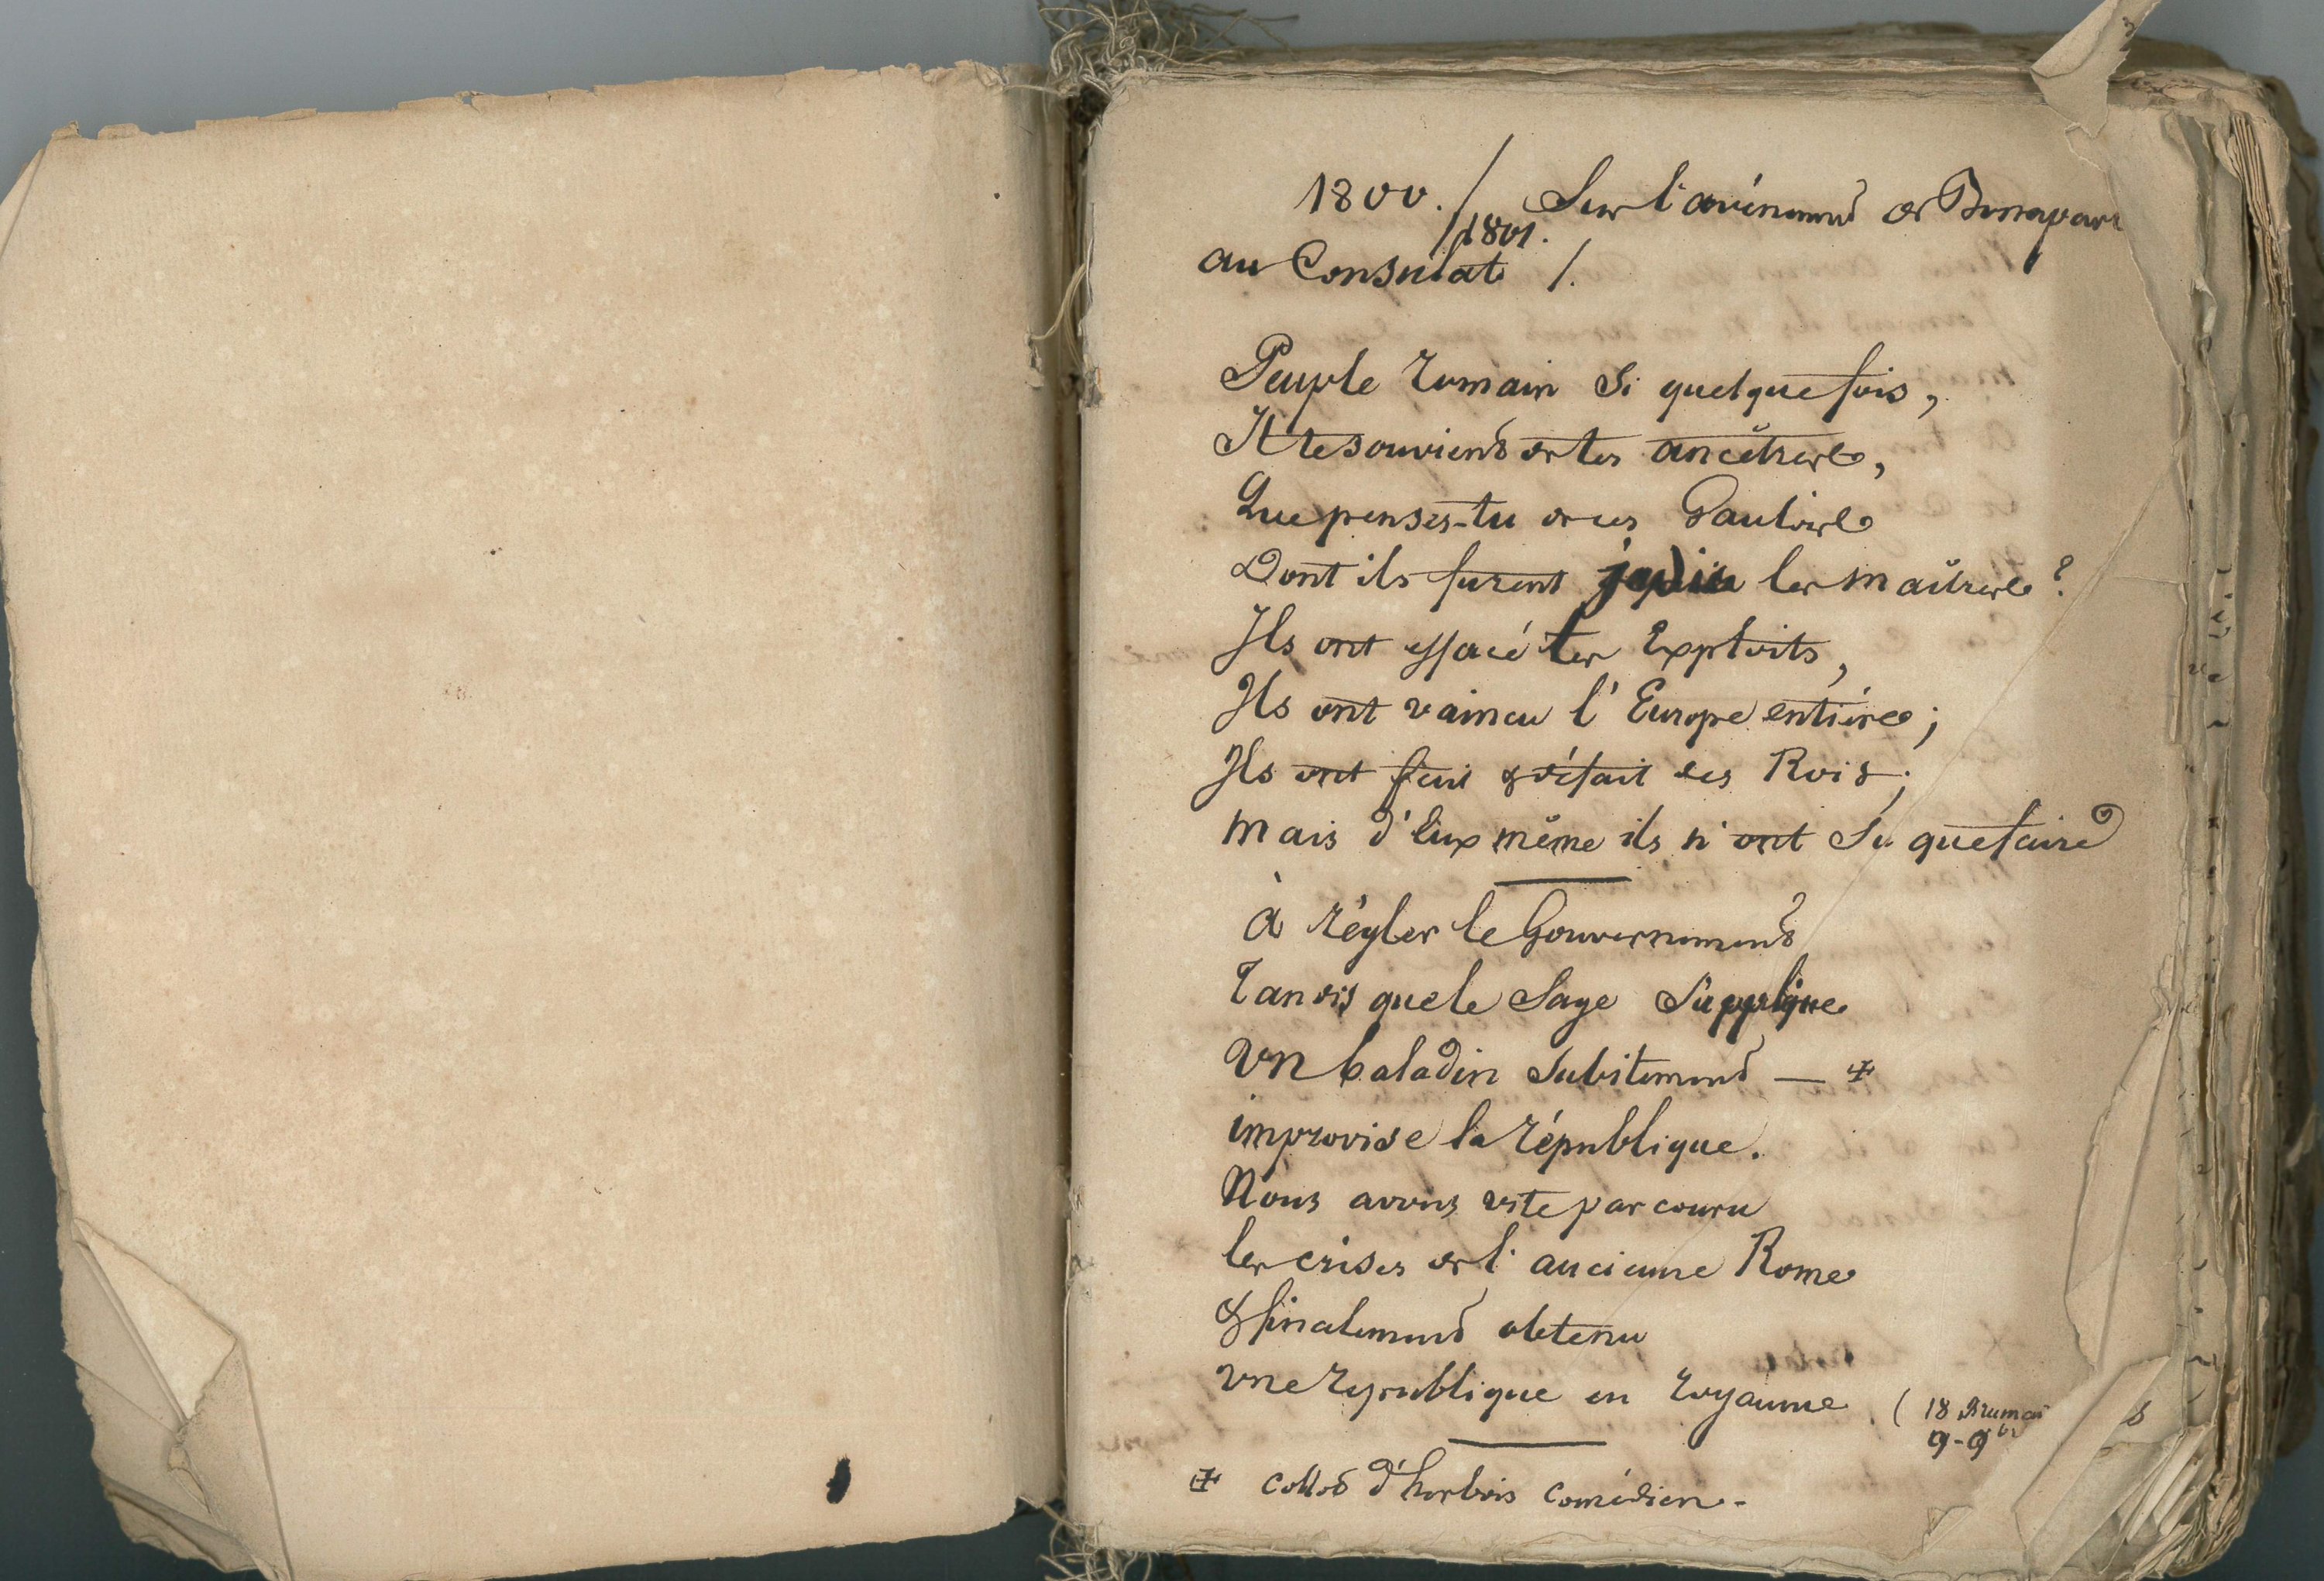 1800. / Sur l'avénement de Bonapar
1801.
au Consulat /.
Peuple romain si quelque fois,
Il te souvient de tes ancêtres,
Que penses-tu de ces Gaulois
Dont ils furent jadis les maîtres?
Ils ont effacé tes Exploits,
Ils ont vaincu l'Europe entière;
Ils ont fait & défait des Rois;
mais d'Eux même ils n'ont su que faire
à régler le Gouvernement
Tandis que le Sage s'applique
Un baladin subitement — ✠
improvise la république.
Nous avons vite parcouru
les crises de l'ancienne Rome
& finalement obtenu
une république en royaume. ( 18 Brumai
9-9br
✠ Collot d'herbois Comédien-